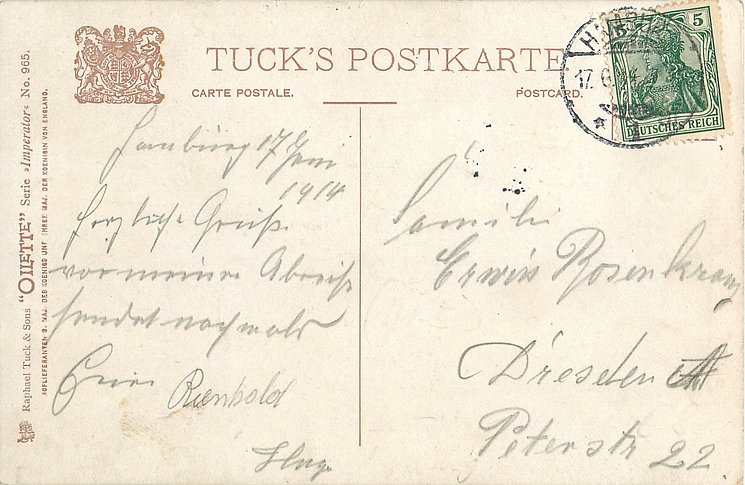 TUCK'S POSTKARTE
CARTE POSTALE.
POSTCARD.
5
DEUTSCHES REICH
HAMBURG
17. 6. 14
Raphael Tuck & Sons "OILETTE" Serie »Imperator« No. 965.
HOFLIEFERANTEN S. MAJ. DES KOENIGS UND IHRER MAJ. DER KOENIGIN VON ENGLAND.
Hamburg 17 Juni
1914
Herzliche Grüße
vor meiner Abreise
sendet nochmals
Euer Reinhold
Familie
Erwin Rosenkranz
Dresden A
Peterstr 22